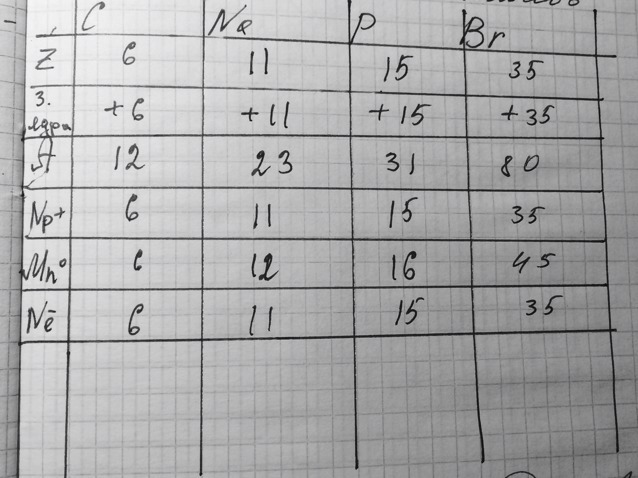 C Na P Br
Z 6 11 15 35
З. ядра +6 +11 +15 +35
A 12 23 31 80
Np+ 6 11 15 35
Nn° 6 12 16 45
Nē 6 11 15 35